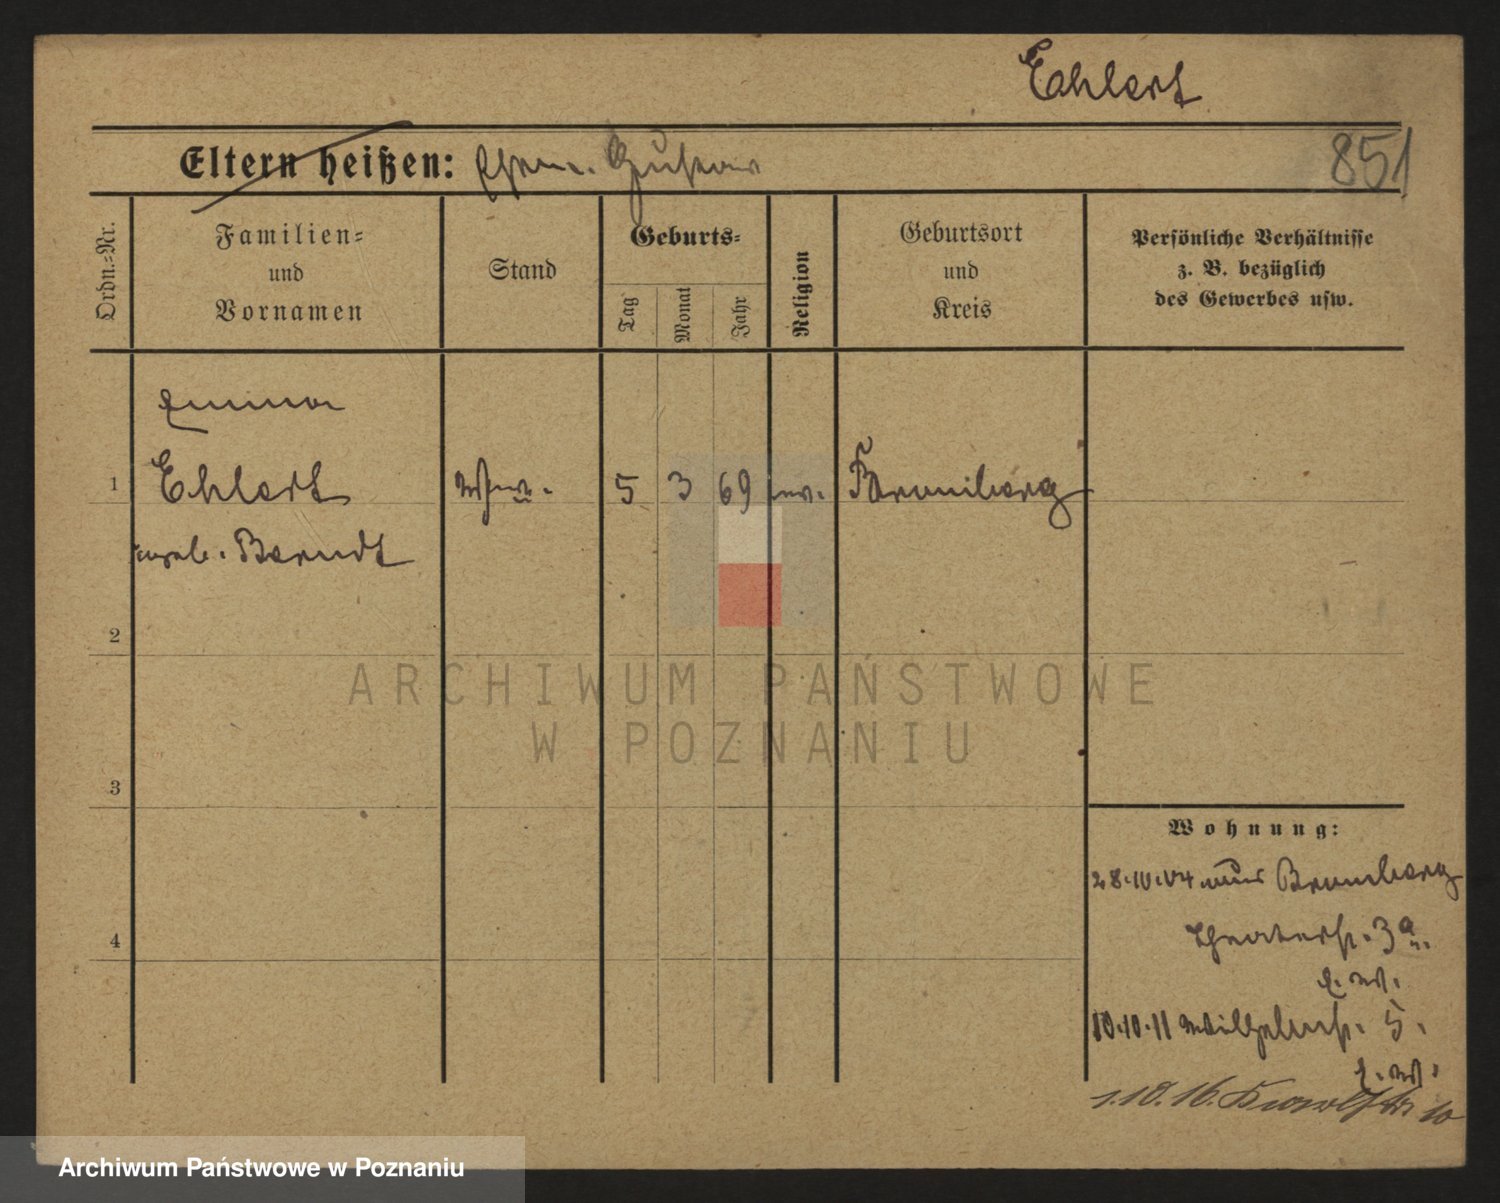 Ehlert
Eltern heißen: Ehem. Gustav
851
Ordn.-Nr.
Familien-
und
Vornamen
Stand
Geburts-
Tag
Monat
Jahr
Religion
Geburtsort
und
Kreis
Persönliche Verhältnisse
z. B. bezüglich
des Gewerbes usw.
Emma
1 Ehlert Wwe. 5 3 69 ev. Bromberg
geb. Berndt
2
ARCHIWUM PAŃSTWOWE
W POZNANIU
3
Wohnung:
28.10.04 aus Bromberg
4
Theaterstr. 3a
E. W.
10.10.11 Wilhelmstr. 5.
E. W.
1.10.16. 10
Archiwum Państwowe w Poznaniu